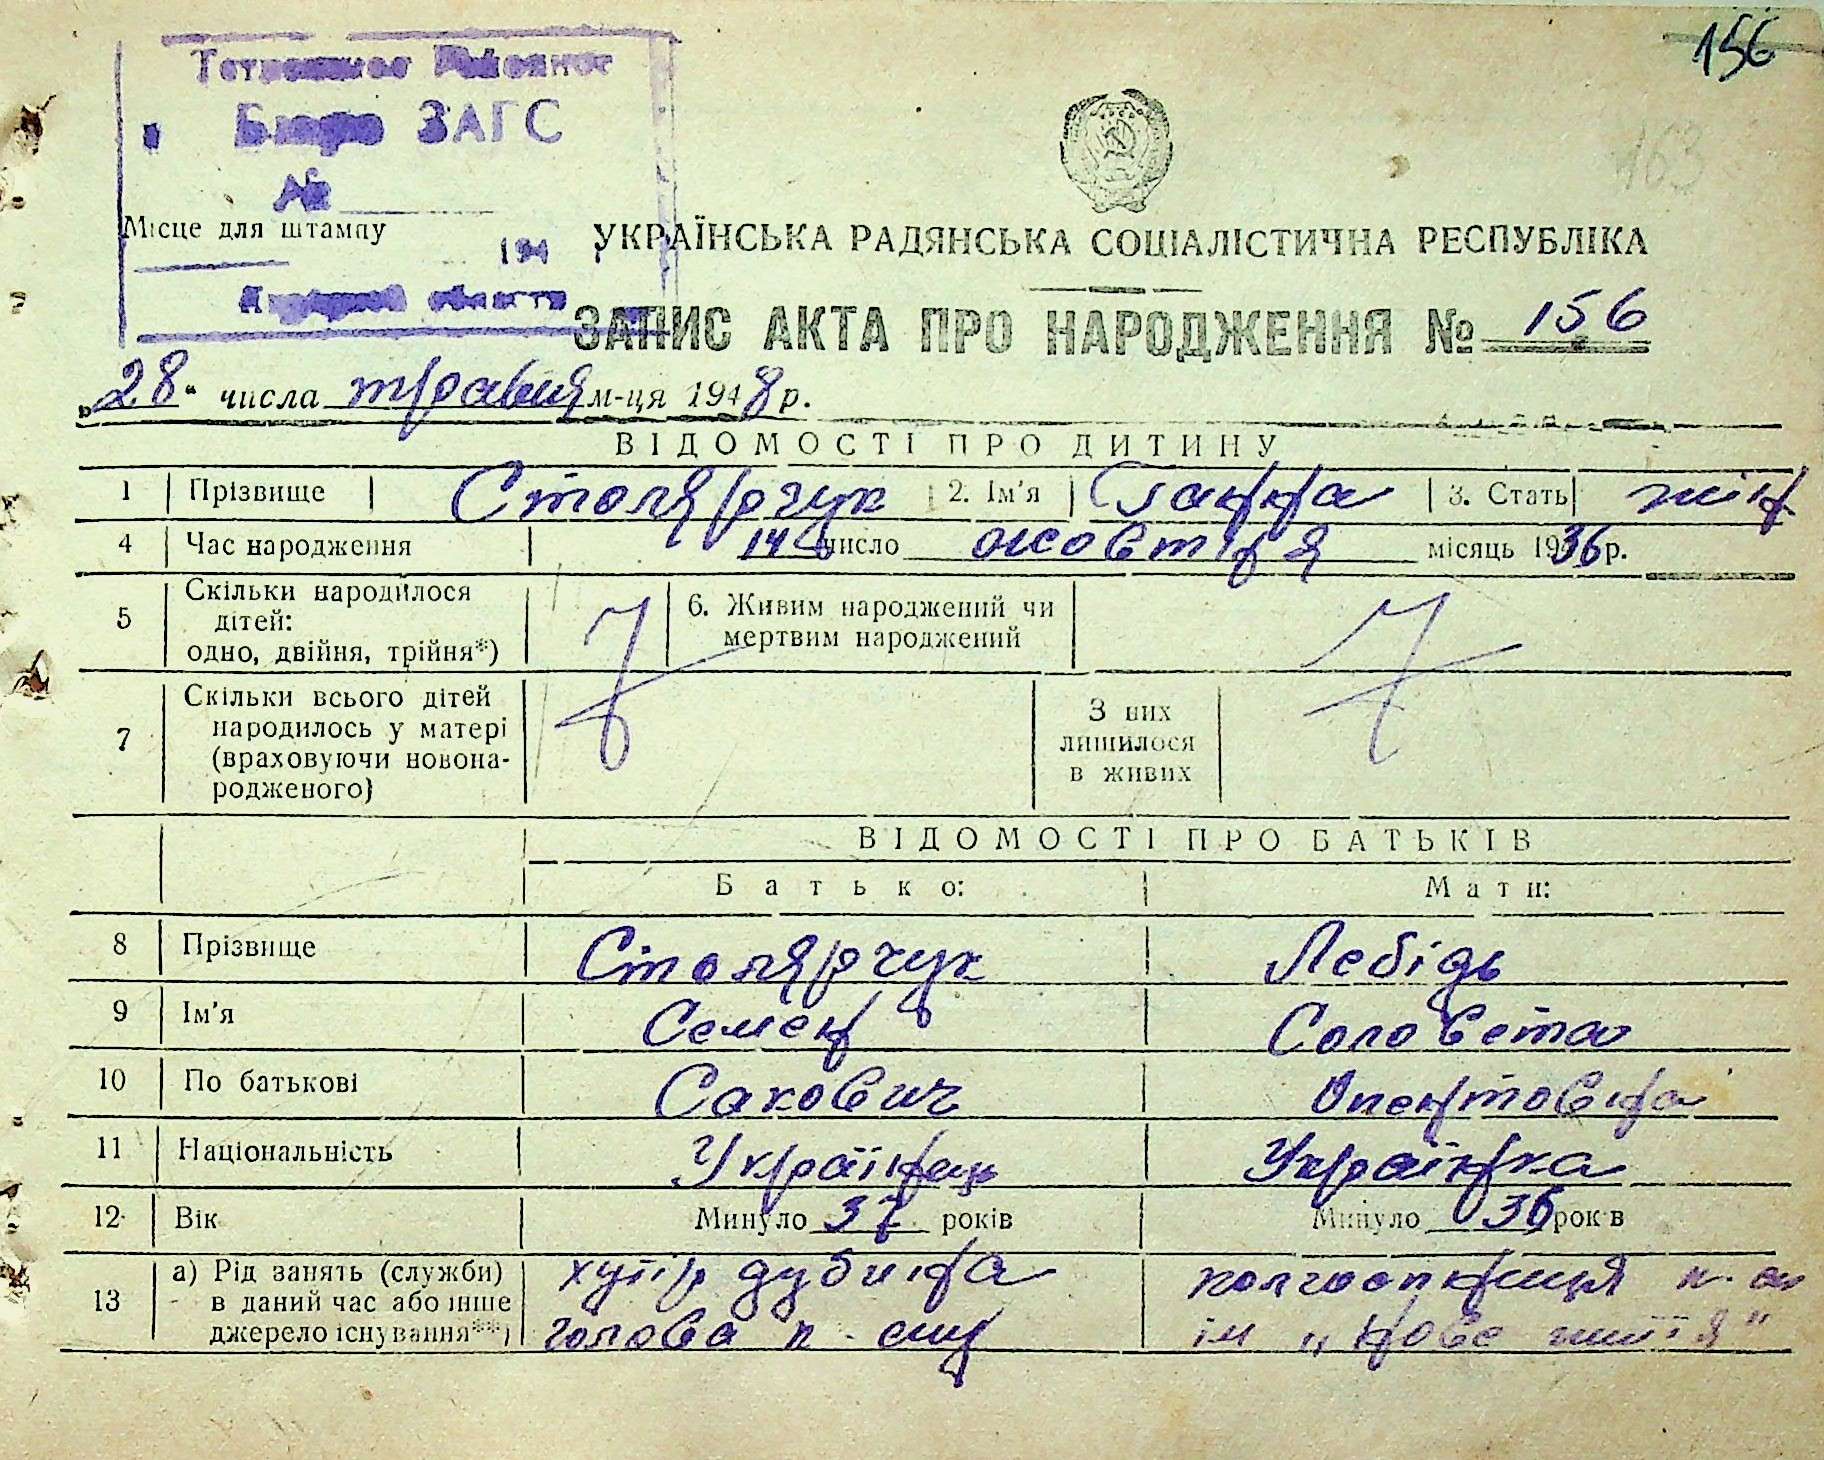 156
163
Бюро ЗАГС
№
Місце для штампу
194
області
УКРАЇНСЬКА РАДЯНСЬКА СОЦІАЛІСТИЧНА РЕСПУБЛІКА
ЗАПИС АКТА ПРО НАРОДЖЕННЯ № 156
„28“ числа травня м-ця 1948 р.
ВІДОМОСТІ ПРО ДИТИНУ
1 Прізвище Столярчук 2. Ім'я Ганна 3. Стать жін
4 Час народження 14 число жовтня місяць 1936 р.
5 Скільки народилося
дітей:
одно, двійня, трійня*)
6. Живим народжений чи
мертвим народжений
7 Скільки всього дітей
народилось у матері
(враховуючи новона-
родженого)
З них
лишилося
в живих
ВІДОМОСТІ ПРО БАТЬКІВ
Батько: Мати:
8 Прізвище Столярчук Лебідь
9 Ім'я Семен Соловета
10 По батькові Сакович
11 Національність Українець Українка
12 Вік Минуло 37 років Минуло 36 років
13 а) Рід занять (служби)
в даний час або інше
джерело існування**)
хутір дубина
голова к.
колгоспниця
ім „Нове життя"